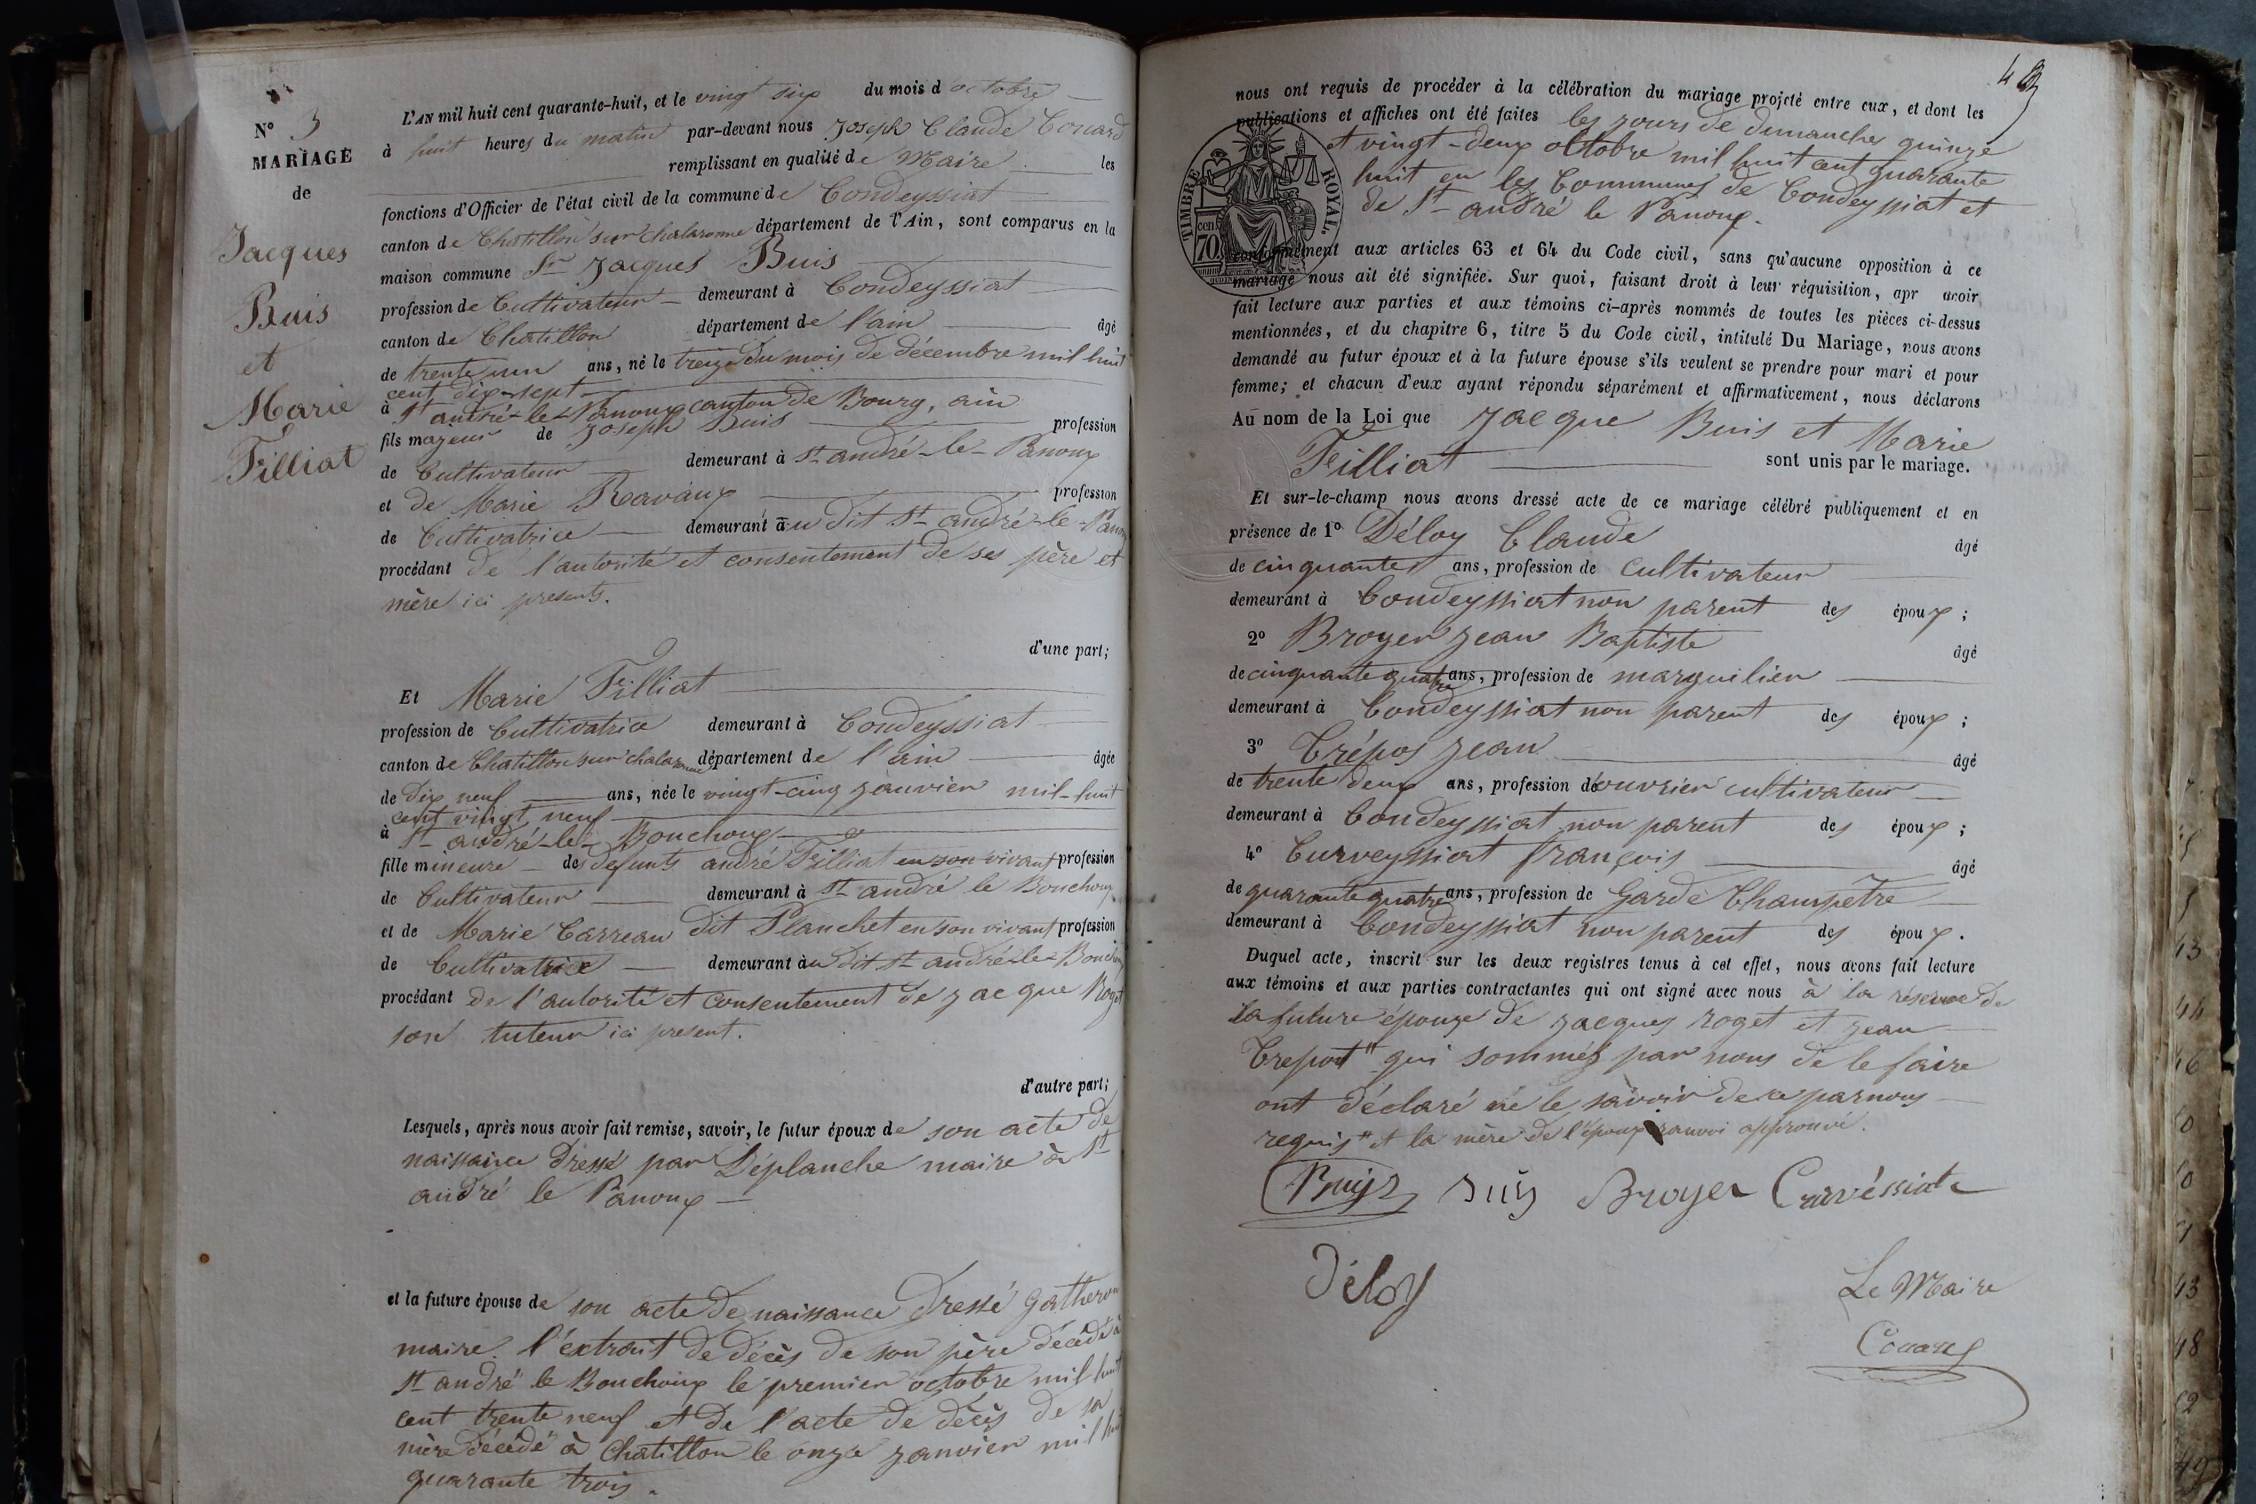 N° 3
MARIAGE
de
Jacques
Buis
et
Marie
Filliat
L'AN mil huit cent quarante-huit, et le vingt six du mois d'octobre
à huit heures du matin par-devant nous Joseph Claude Couard
remplissant en qualité de Maire les
fonctions d'Officier de l'état civil de la commune de Condeyssiat
canton de Chatillon sur chalaronne département de l'Ain, sont comparus en la
maison commune Sr Jacques Buis
profession de Cultivateur demeurant à Condeyssiat
canton de Chatillon département de l'ain âgé
de trente un ans, né le treize du mois de décembre mil huit
cent dix-sept
à St andré-le-Panoux canton de Bourg, ain
fils majeur de Joseph Buis profession
de Cultivateur demeurant à St andré-le-Panoux
et de Marie Ravaux profession
de Cultivatrice demeurant à au dit St andré-le-Panoux
procédant de l'autorité et consentement de ses père et
mère ici presents.
d'une part;
Et Marie Filliat
profession de Cultivatrice demeurant à Condeyssiat
canton de Chatillon sur chalaronne département de l'ain âgée
de dix neuf ans, née le vingt-cinq janvier mil-huit
cent vingt neuf
à St andré-le-Bouchoux
fille mineure de défunts andré Filliat en son vivant profession
de Cultivateur demeurant à St andré le Bouchoux
et de Marie Carreau dit Planchet en son vivant profession
de Cultivatrice demeurant au dit St andré-le-Bouchoux
procédant de l'autorité et consentement de jacque Roget
son tuteur ici present.
d'autre part;
Lesquels, après nous avoir fait remise, savoir, le futur époux de son acte de
naissance dressé par Déplanche maire à St
andré le Panoux
et la future épouse de son acte de naissance dressé gatheron
maire. l'extrait de décès de son père décédé à
St andré le Bouchoux le premier octobre mil huit
cent trente neuf et de l'acte de décès de sa
mère décédé à Chatillon le onze janvier mil huit
quarante trois.
4
nous ont requis de procéder à la célébration du mariage projeté entre eux, et dont les
publications et affiches ont été faites les jours de dimanches quinze
et vingt-deux octobre mil huit cent quarante
huit en les Communes de Condeyssiat et
de St andré le Panoux.
TIMBRE ROYAL.
cen 70
conformément aux articles 63 et 64 du Code civil, sans qu'aucune opposition à ce
mariage nous ait été signifiée. Sur quoi, faisant droit à leur réquisition, apr avoir
fait lecture aux parties et aux témoins ci-après nommés de toutes les pièces ci-dessus
mentionnées, et du chapitre 6, titre 5 du Code civil, intitulé Du Mariage, nous avons
demandé au futur époux et à la future épouse s'ils veulent se prendre pour mari et pour
femme; et chacun d'eux ayant répondu séparément et affirmativement, nous déclarons
Au nom de la Loi que Jacque Buis et Marie
Filliat sont unis par le mariage.
Et sur-le-champ nous avons dressé acte de ce mariage célébré publiquement et en
présence de 1° Déloy Claude âgé
de cinquante ans, profession de cultivateur
demeurant à Condeyssiat non parent des époux;
2° Broyer jean Baptiste âgé
de cinquante quatre ans, profession de marguilier
demeurant à Condeyssiat non parent des époux;
3° Trépos jean âgé
de trente deux ans, profession d'ouvrier cultivateur
demeurant à Condeyssiat non parent des époux;
4° Curveyssiat françois âgé
de quarante quatre ans, profession de Garde Champêtre
demeurant à Condeyssiat non parent des époux.
Duquel acte, inscrit sur les deux registres tenus à cet effet, nous avons fait lecture
aux témoins et aux parties contractantes qui ont signé avec nous à la réserve de
la future épouse de jacques roget et jean
Trepost" qui sommés par nous de le faire
ont déclaré ne le savoir de ce par nous
requis" et la mère de l'époux ranvoi approuvé.
Buis Buis Broyer Curvéssiat
Déloy
Le Maire
Couard